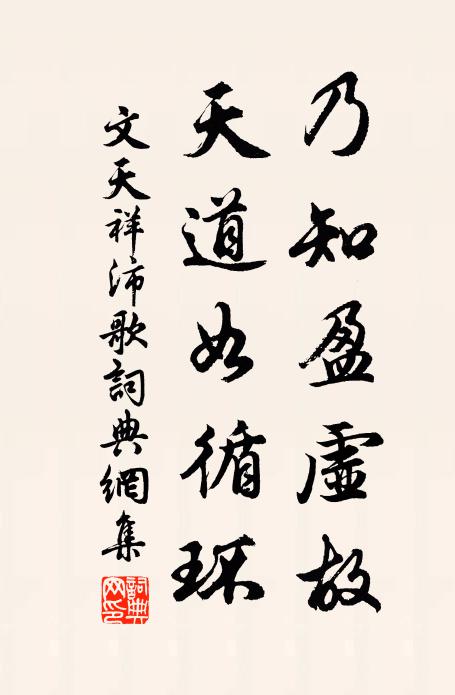 乃知盈虛故
天道如循環
文天祥沛歌詞典網集
詞典網印